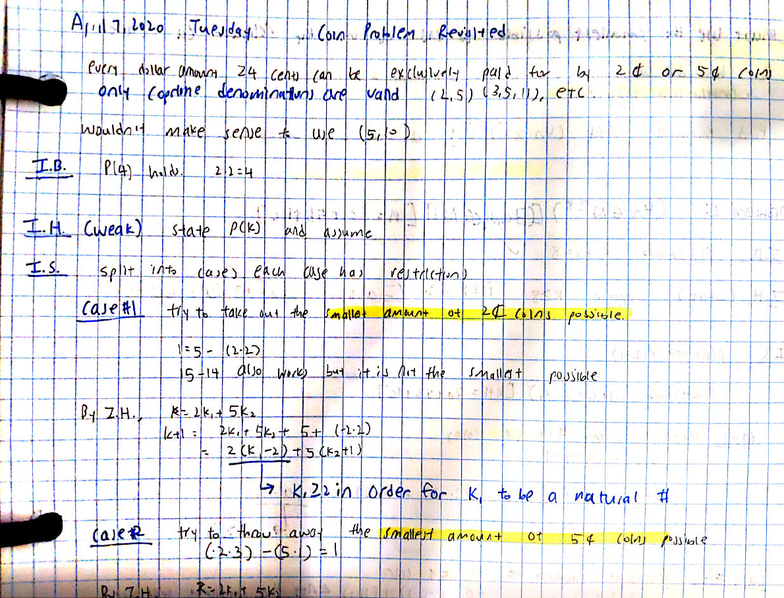 April 7, 2020, Tuesday Coin Problem Revisited
every dollar amount ≥4 cents can be exclusively paid for by 2¢ or 5¢ coins
only coprime denominations are valid (2,5) (3,5,11), etc.
wouldn't make sense to use (5,10)
I.B. P(4) holds. 2·2=4
I.H. (weak) state P(k) and assume
I.S. split into cases each case has restrictions
Case #1 try to take out the smallest amount of 2¢ coins possible.
1=5-(2·2)
15-14 also works but it is not the smallest possible
By I.H., k=2k₁+5k₂
k+1 = 2k₁+5k₂+5+(-2·2)
= 2(k₁-2)+5(k₂+1)
↳ k₁≥2 in order for k₁ to be a natural #
Case #2 try to throw away the smallest amount of 5¢ coins possible
(2·3)-(5·1)=1
By I.H. k=2k₁+5k₂